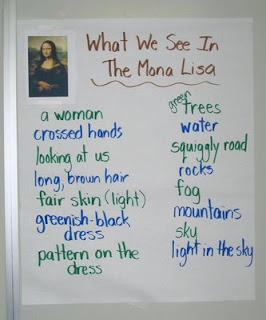 What We See In
The Mona Lisa
a woman
crossed hands
looking at us
long, brown hair
fair skin (light)
greenish-black
dress
pattern on the
dress
green trees
water
squiggly road
rocks
fog
mountains
sky
light in the sky